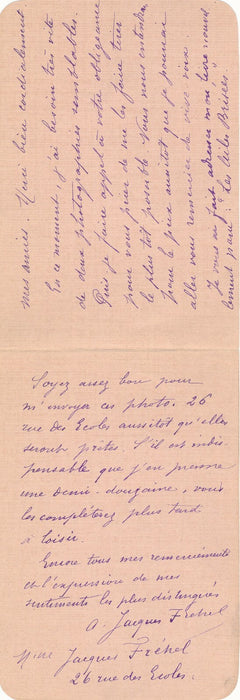 mes amies. Merci bien cordialement
En ce moment, j'ai besoin très vite
de deux photographies semblables.
Puis je faire appel à votre obligeance
pour vous prier de me les faire tirer
le plus tôt possible. Nous nous entendrons
pour le prix aussitôt que je pourrai
aller vous remercier de vive voix.
Je vous ai fait adresser mon livre nouvel
lement paru : "Les Ailes Brisées."
Soyez assez bon pour
m'envoyer ces photo. 26
rue des Ecoles aussitôt qu'elles
seront prêtes. S'il est indis-
pensable que j'en prenne
une demi-douzaine, vous
les compléterez plus tard
à loisir.
Encore tous mes remerciements
et l'expression de mes
sentiments les plus distingués
A. Jacques Fréhel
Mme Jacques Fréhel
26 rue des Ecoles.